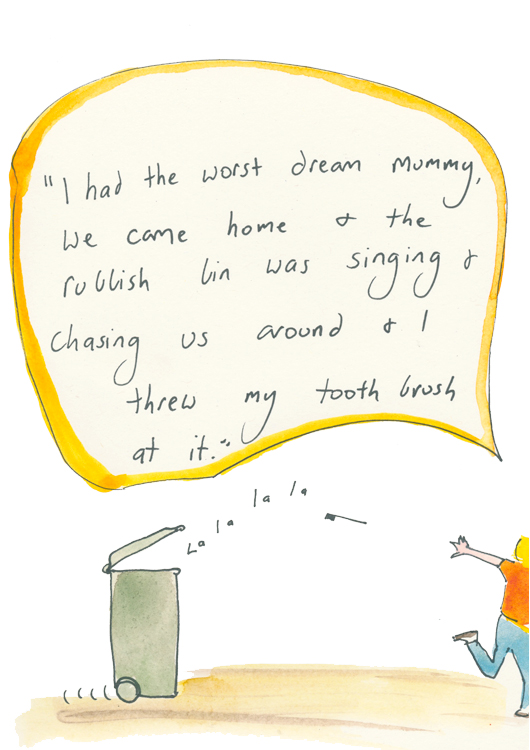 "I had the worst dream mummy,
we came home & the
rubbish bin was singing &
chasing us around & I
threw my tooth brush
at it."
La la la la